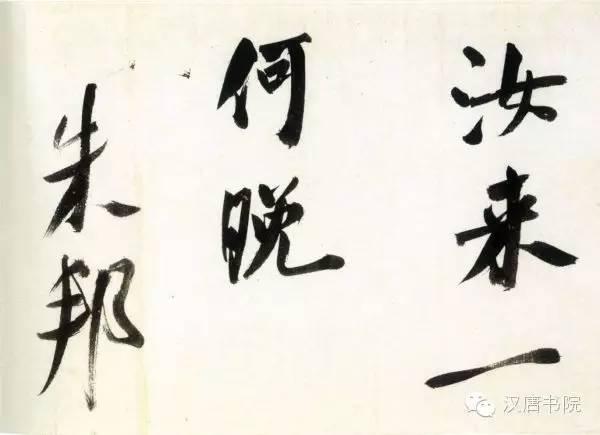 汝来一
何晚
朱邦
汉唐书院